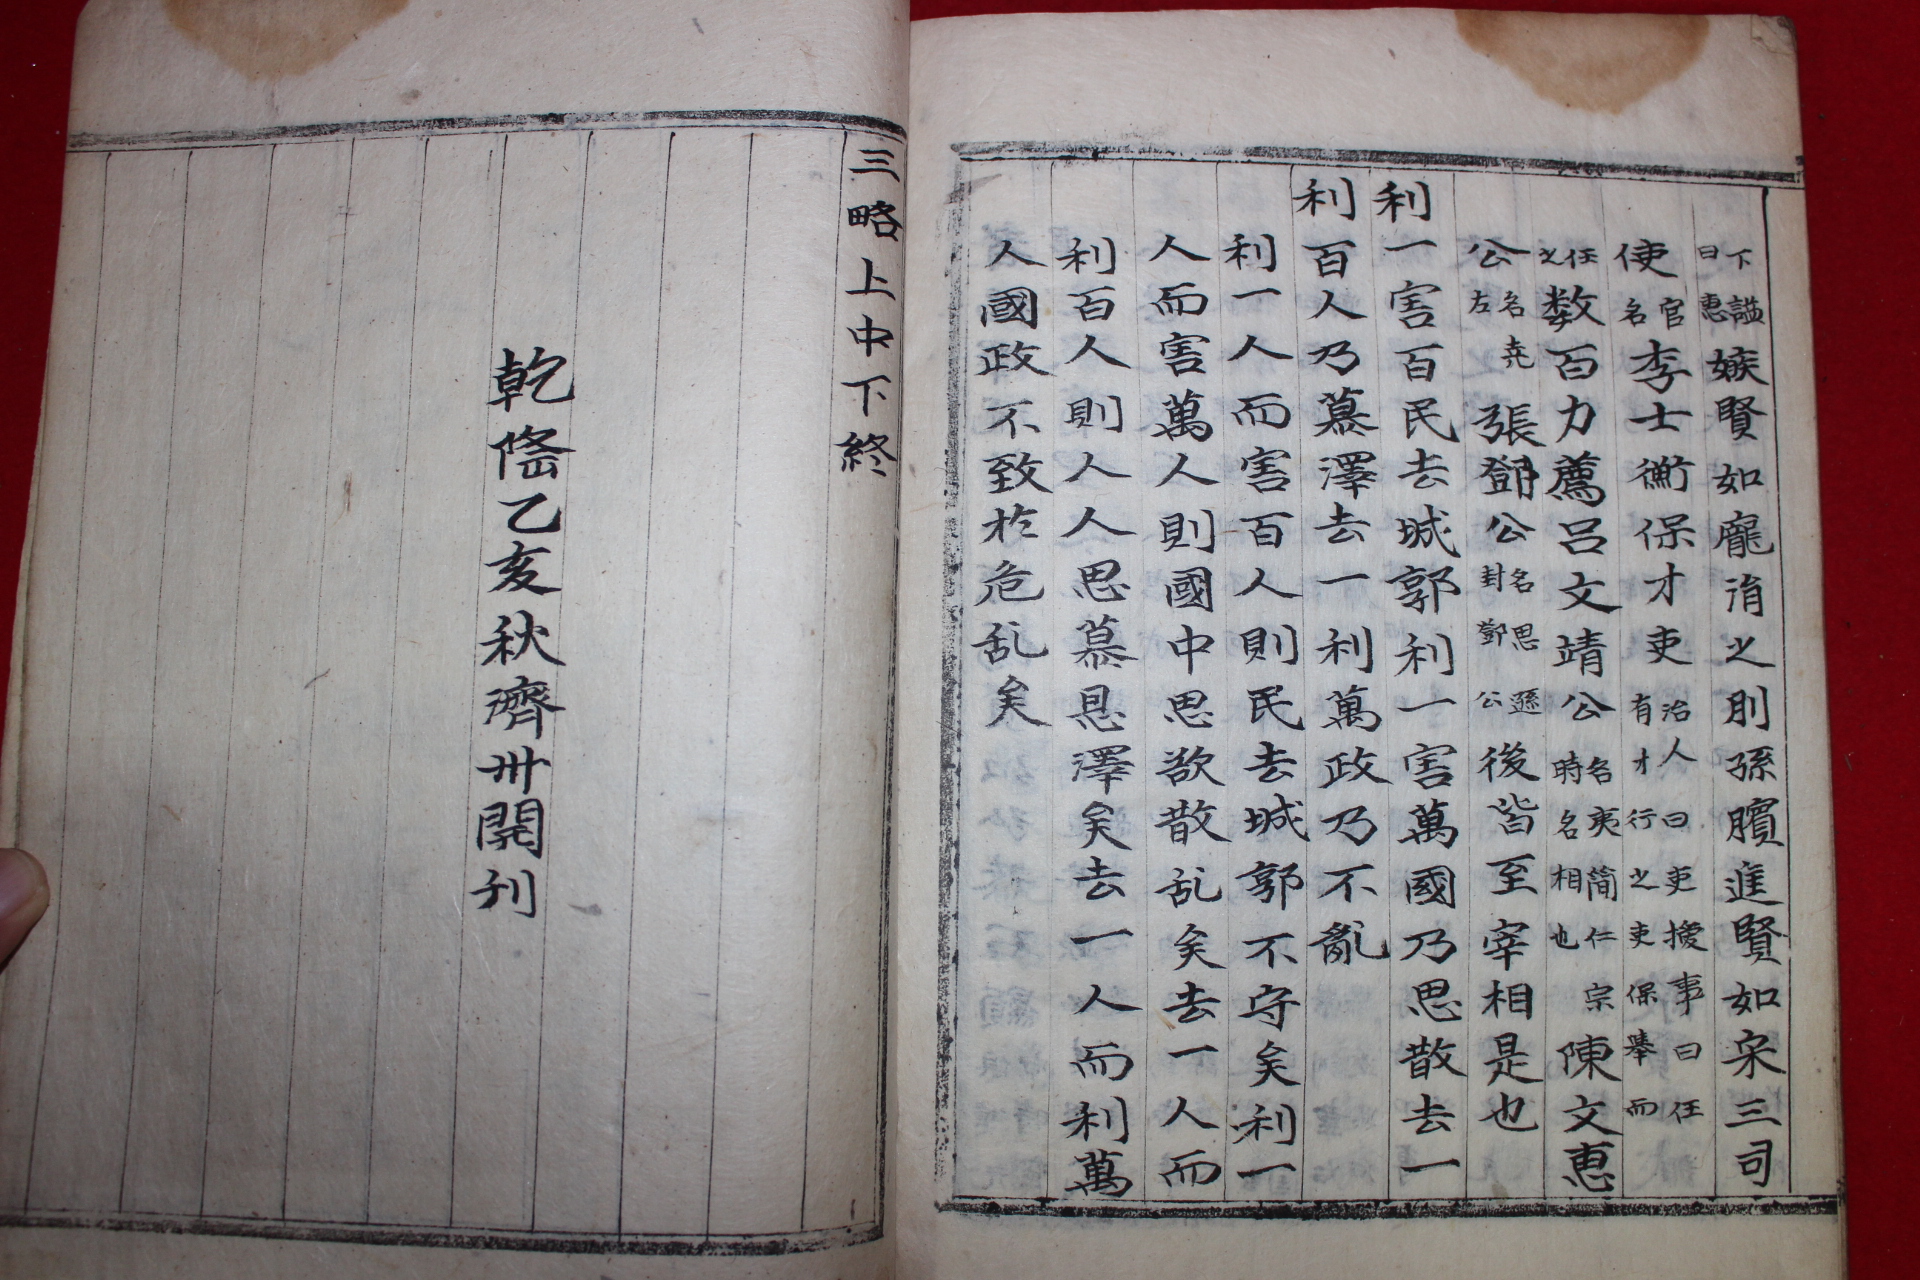 下謚曰惠嫉賢如龐涓之刖孫臏進賢如宋三司
使官名李士衡保才吏治人曰吏援事曰任有才行之吏保舉而
任之数百力薦呂文靖公名夷簡仁宗時名相也陳文惠
公名堯左張鄧公名思遜封鄧公後皆至宰相是也
利一害百民去城郭利一害萬國乃思散去一
利百人乃慕澤去一利萬政乃不亂
利一人而害百人則民去城郭不守矣利一
人而害萬人則國中思欲散乱矣去一人而
利百人則人人思慕恩澤矣去一人而利萬
人國政不致於危乱矣
三略上中下終
乾隆乙亥秋濟州開刊